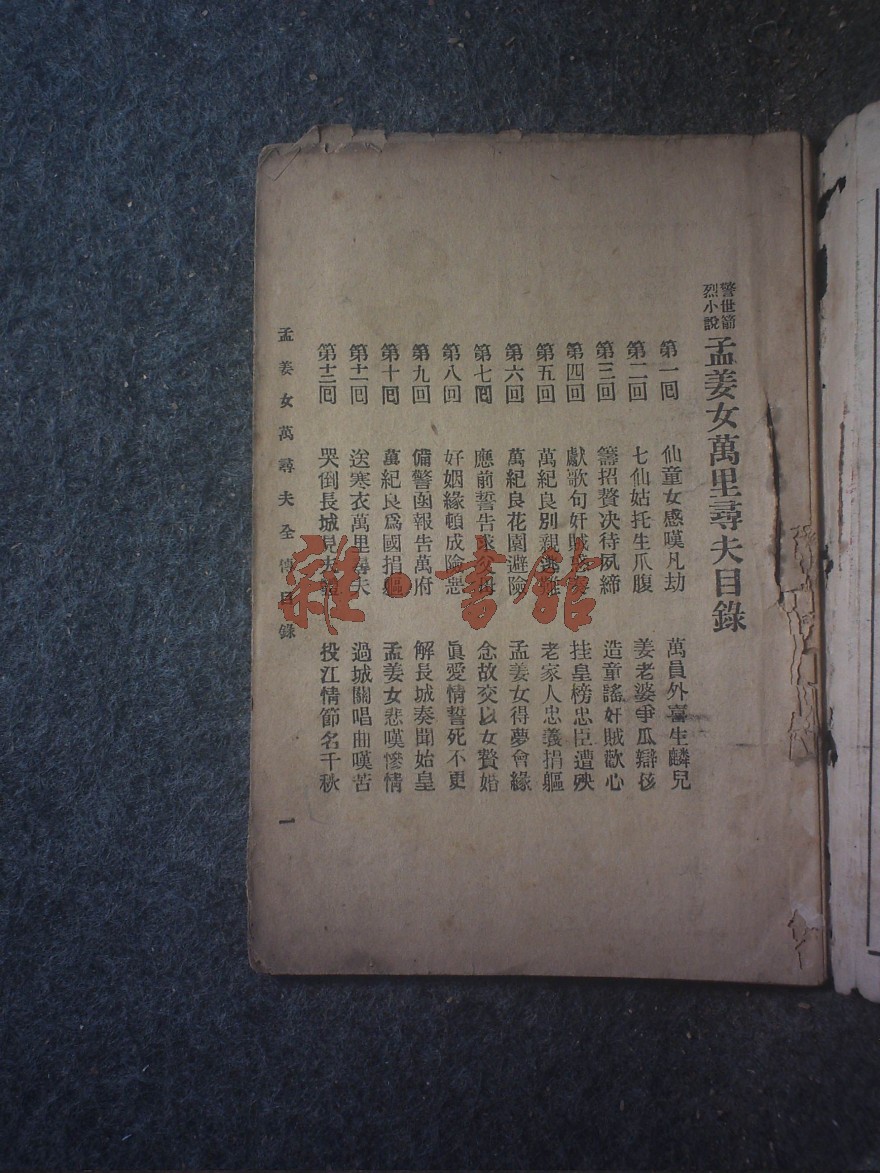 警世節
烈小說
孟姜女萬里尋夫目錄
第一回 仙童女感嘆凡劫 萬員外喜生麟兒
第二回 七仙姑托生爪腹 姜老婆爭瓜辯孩
第三回 籌招贅決待夙締 造童謠奸賊歡心
第四回 獻歌句奸賊 挂皇榜忠臣遭殃
第五回 萬紀良別親逃難 老家人忠義捐軀
第六回 萬紀良花園避險 孟姜女得夢會緣
第七回 應前誓告求父母 念故交以女贅婚
第八回 好姻緣頓成險惡 眞愛情誓死不更
第九回 備警函報告萬府 解長城奏聞始皇
第十回 萬紀良爲國捐軀 孟姜女悲嘆慘情
第十一回 送寒衣萬里尋夫 過城關唱曲嘆苦
第十二回 哭倒長城見夫 投江情節名千秋
孟姜女萬尋夫全傳目錄
一
雜·書館